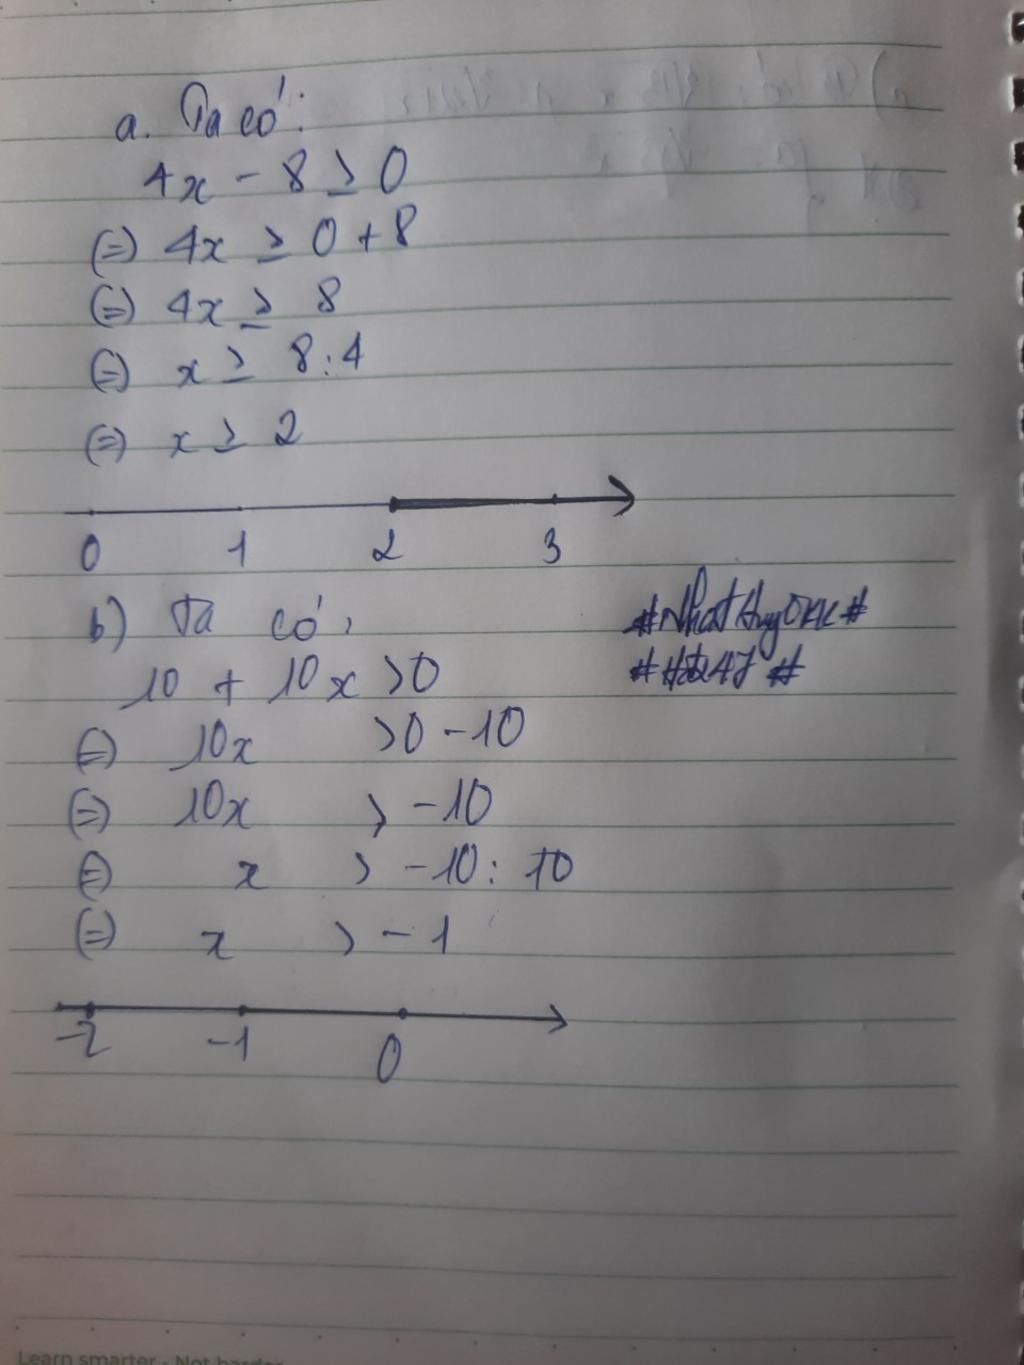 a. Ta có:
4x - 8 ≥ 0
(=) 4x ≥ 0 + 8
(=) 4x ≥ 8
(=) x ≥ 8 : 4
(=) x ≥ 2
0 1 2 3
b) Ta có,
10 + 10x > 0
(=) 10x > 0 - 10
(=) 10x > -10
(=) x > -10 : 10
(=) x > -1
-2 -1 0
Learn smarter - Not harder